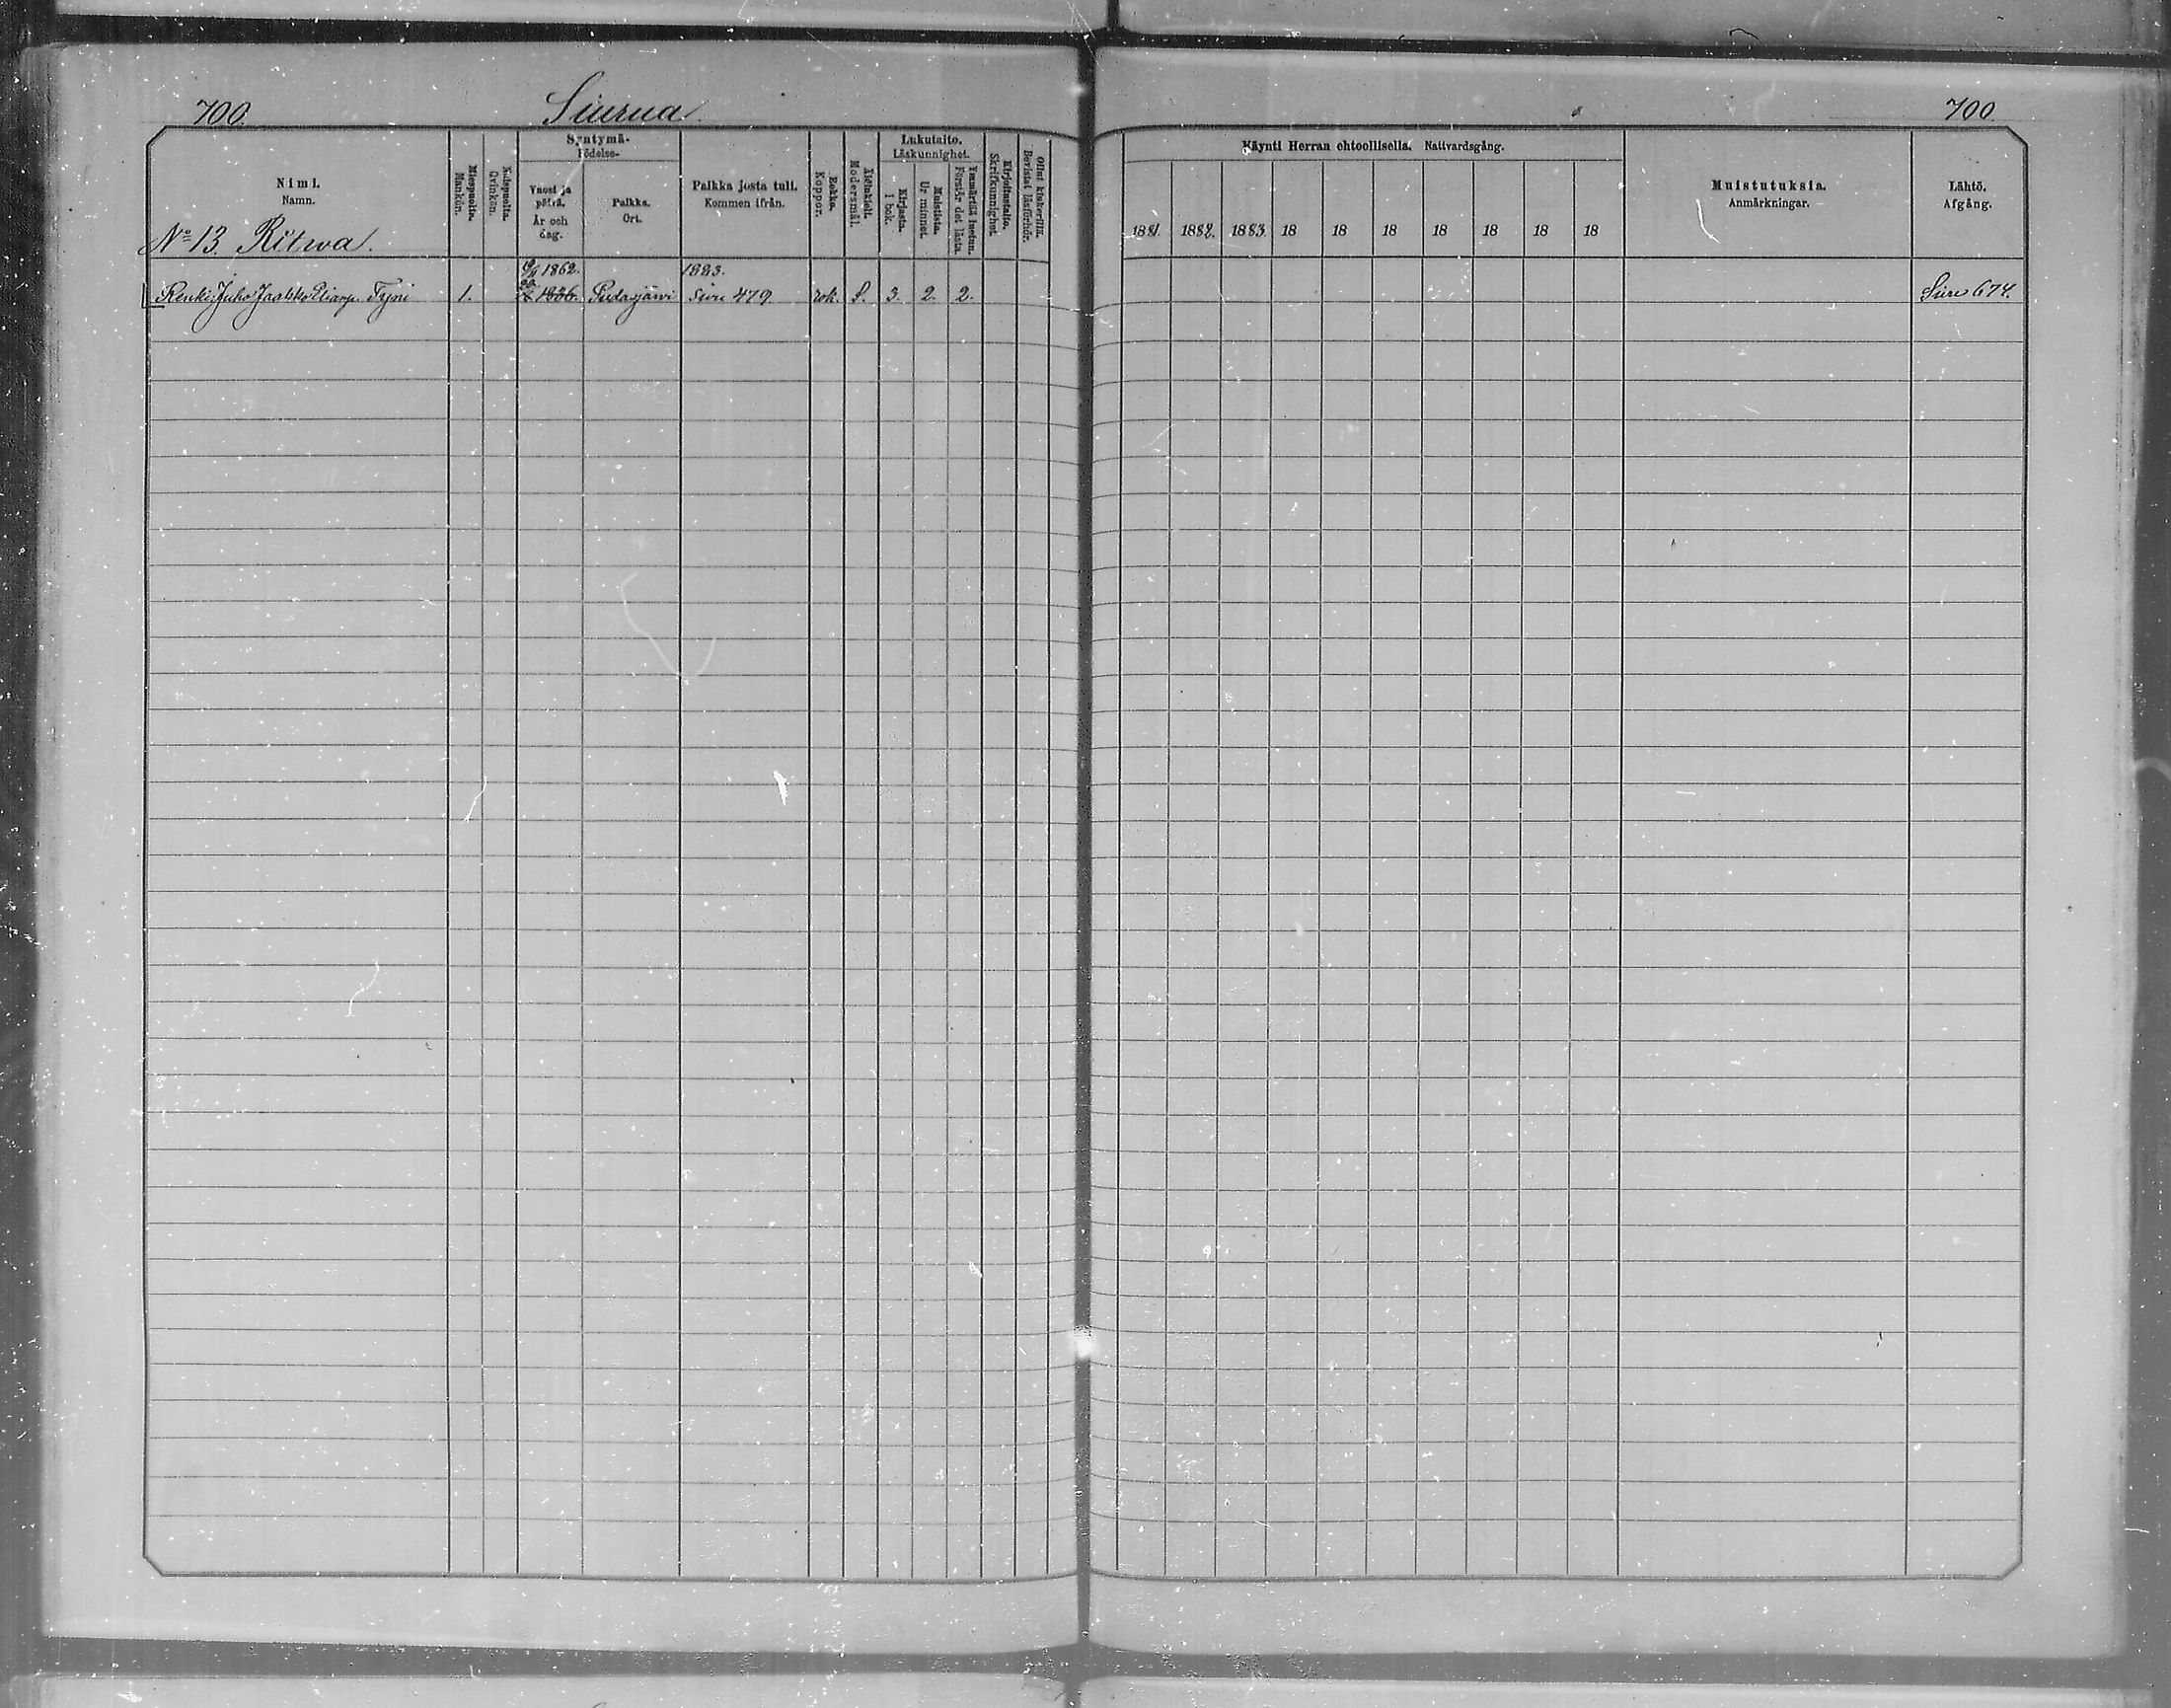 700. Siurua. 700
Syntymä-
Födelse-
Lukutaito.
Läskunnighet.
Käynti Herran ehtoollisella. Nattvardsgång.
Nimi.
Namn.
Miespuolia.
Mankön.
Naispuolia.
Qvinkön.
Vuosi ja
päivä.
År och
dag.
Paikka.
Ort.
Paikka josta tuli.
Kommen ifrån.
Rokko.
Koppor.
Äidinkieli.
Modersmål.
Kirjasta.
I bok.
Muistista.
Ur minnet.
Ymmärtää luetun.
Förstår det lästa.
Kirjoitustaito.
Skrifkunnighet.
Ollut kinkerillä.
Bevistat läsförhör.
1881. 1882. 1883. 18 18 18 18 18 18 18
Muistutuksia.
Anmärkningar.
Lähtö.
Afgång.
No 13. Ritwa.
1862. 1883.
Renki Juho Jaakko Tyni 1. 1836. Pudasjärvi sivu 479 rok. S. 3. 2. 2. Sivu 674.